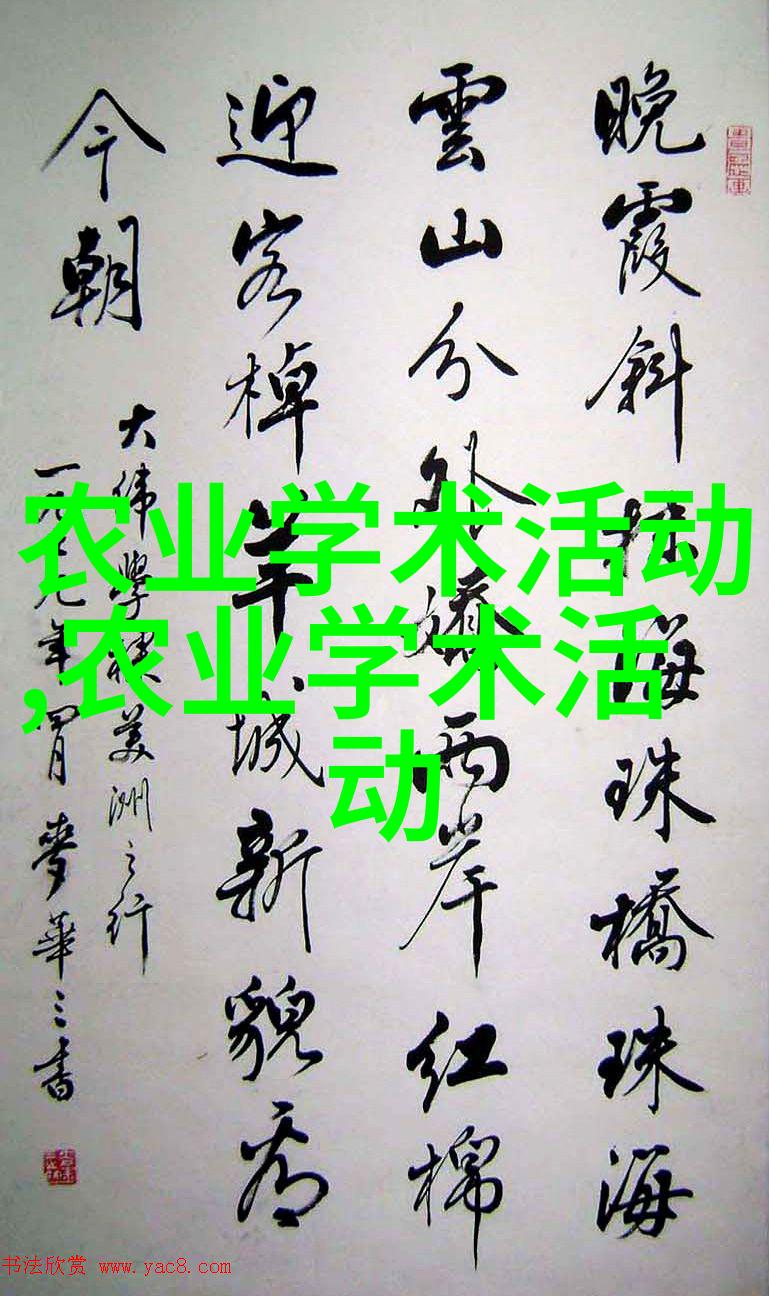 晚霞斜抹海珠橋珠海
雲山分外嬌兩岸紅棉
迎客棹羊城新貌看
今朝
大偉學棣美洲之行
一九七九年四月麥華三書
农业学术活动
,农业学术活
动
书法欣赏 www.yac8.com